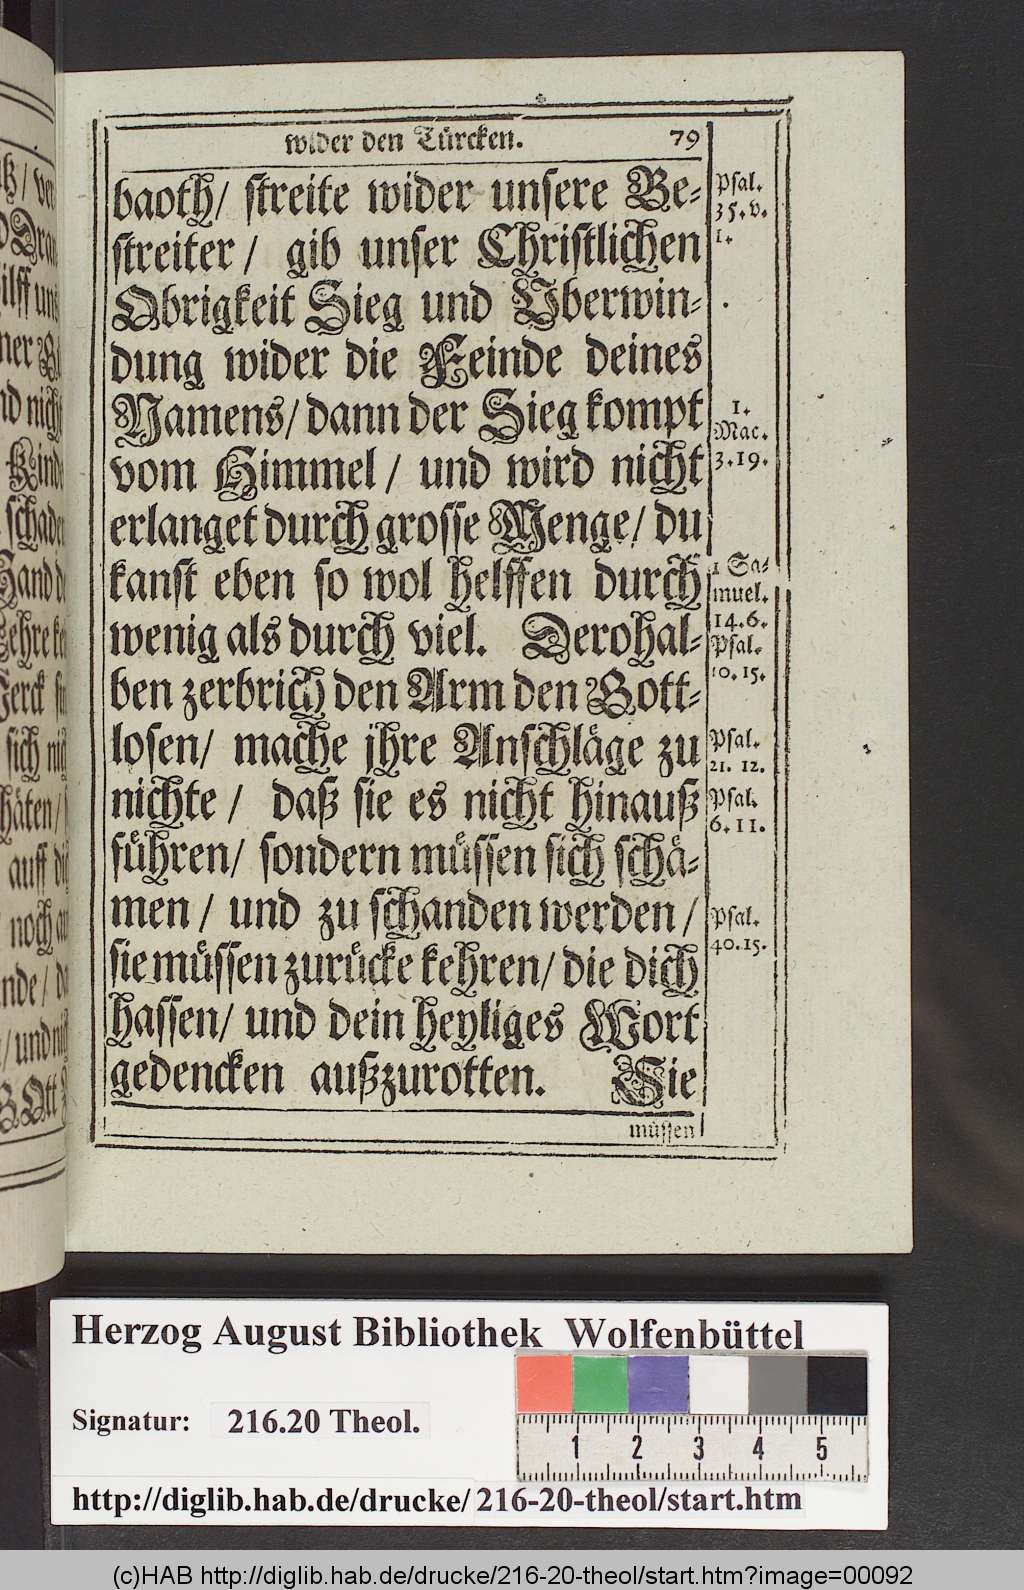 wider den Türcken. 79
baoth/ streite wider unsere Be-
streiter/ gib unser Christlichen
Obrigkeit Sieg und Uberwin-
dung wider die Feinde deines
Namens/ dann der Sieg kompt
vom Himmel/ und wird nicht
erlanget durch grosse Menge/ du
kanst eben so wol helffen durch
wenig als durch viel. Derohal-
ben zerbrich den Arm den Gott-
losen/ mache jhre Anschläge zu
nichte/ daß sie es nicht hinauß
führen/ sondern müssen sich schä-
men/ und zu schanden werden/
sie müssen zurücke kehren/ die dich
hassen/ und dein heyliges Wort
gedencken außzurotten. Sie
müssen
Psal.
35. v.
1.
1.
Mac.
3. 19.
1 Sa-
muel.
14. 6.
Psal.
10. 15.
Psal.
21. 12.
Psal.
6. 11.
Psal.
40. 15.
ilff und
nd nicht
Kinde
schaden
Hand
sich
auff
noch
Herzog August Bibliothek Wolfenbüttel
Signatur: 216.20 Theol.
1 2 3 4 5
http://diglib.hab.de/drucke/216-20-theol/start.htm
(c)HAB http://diglib.hab.de/drucke/216-20-theol/start.htm?image=00092